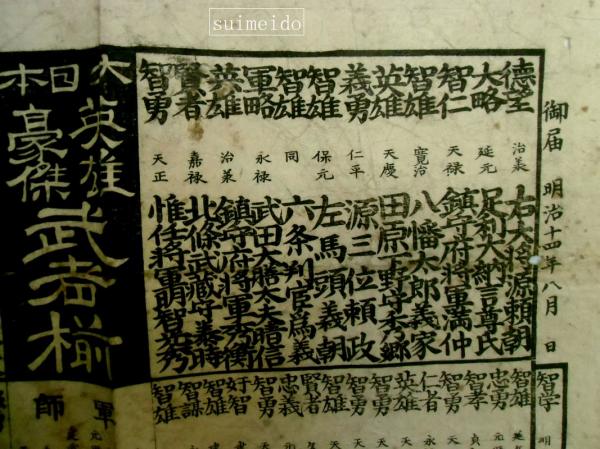 suimeido
御届 明治十四年八月 日
德望 治承 右大将源頼朝
大略 延元 足利大納言尊氏
智仁 天禄 鎮守府将軍満仲
智雄 寛治 八幡太郎義家
英雄 天慶 田原下野守秀郷
義勇 仁平 源三位頼政
智雄 保元 左馬頭義朝
智雄 同 六条判官為義
軍略 永禄 武田大膳太夫晴信
英雄 治承 鎮守府将軍秀衡
賢者 嘉禄 北條武蔵守泰時
智勇 天正 惟任将軍明智光秀
大日本
英雄
豪傑
武者揃
軍師
智学 明
智雄
忠勇
智孝
仁者 永
英雄 天
智勇 天
賢者
忠義
智勇
好智
智謀
智雄